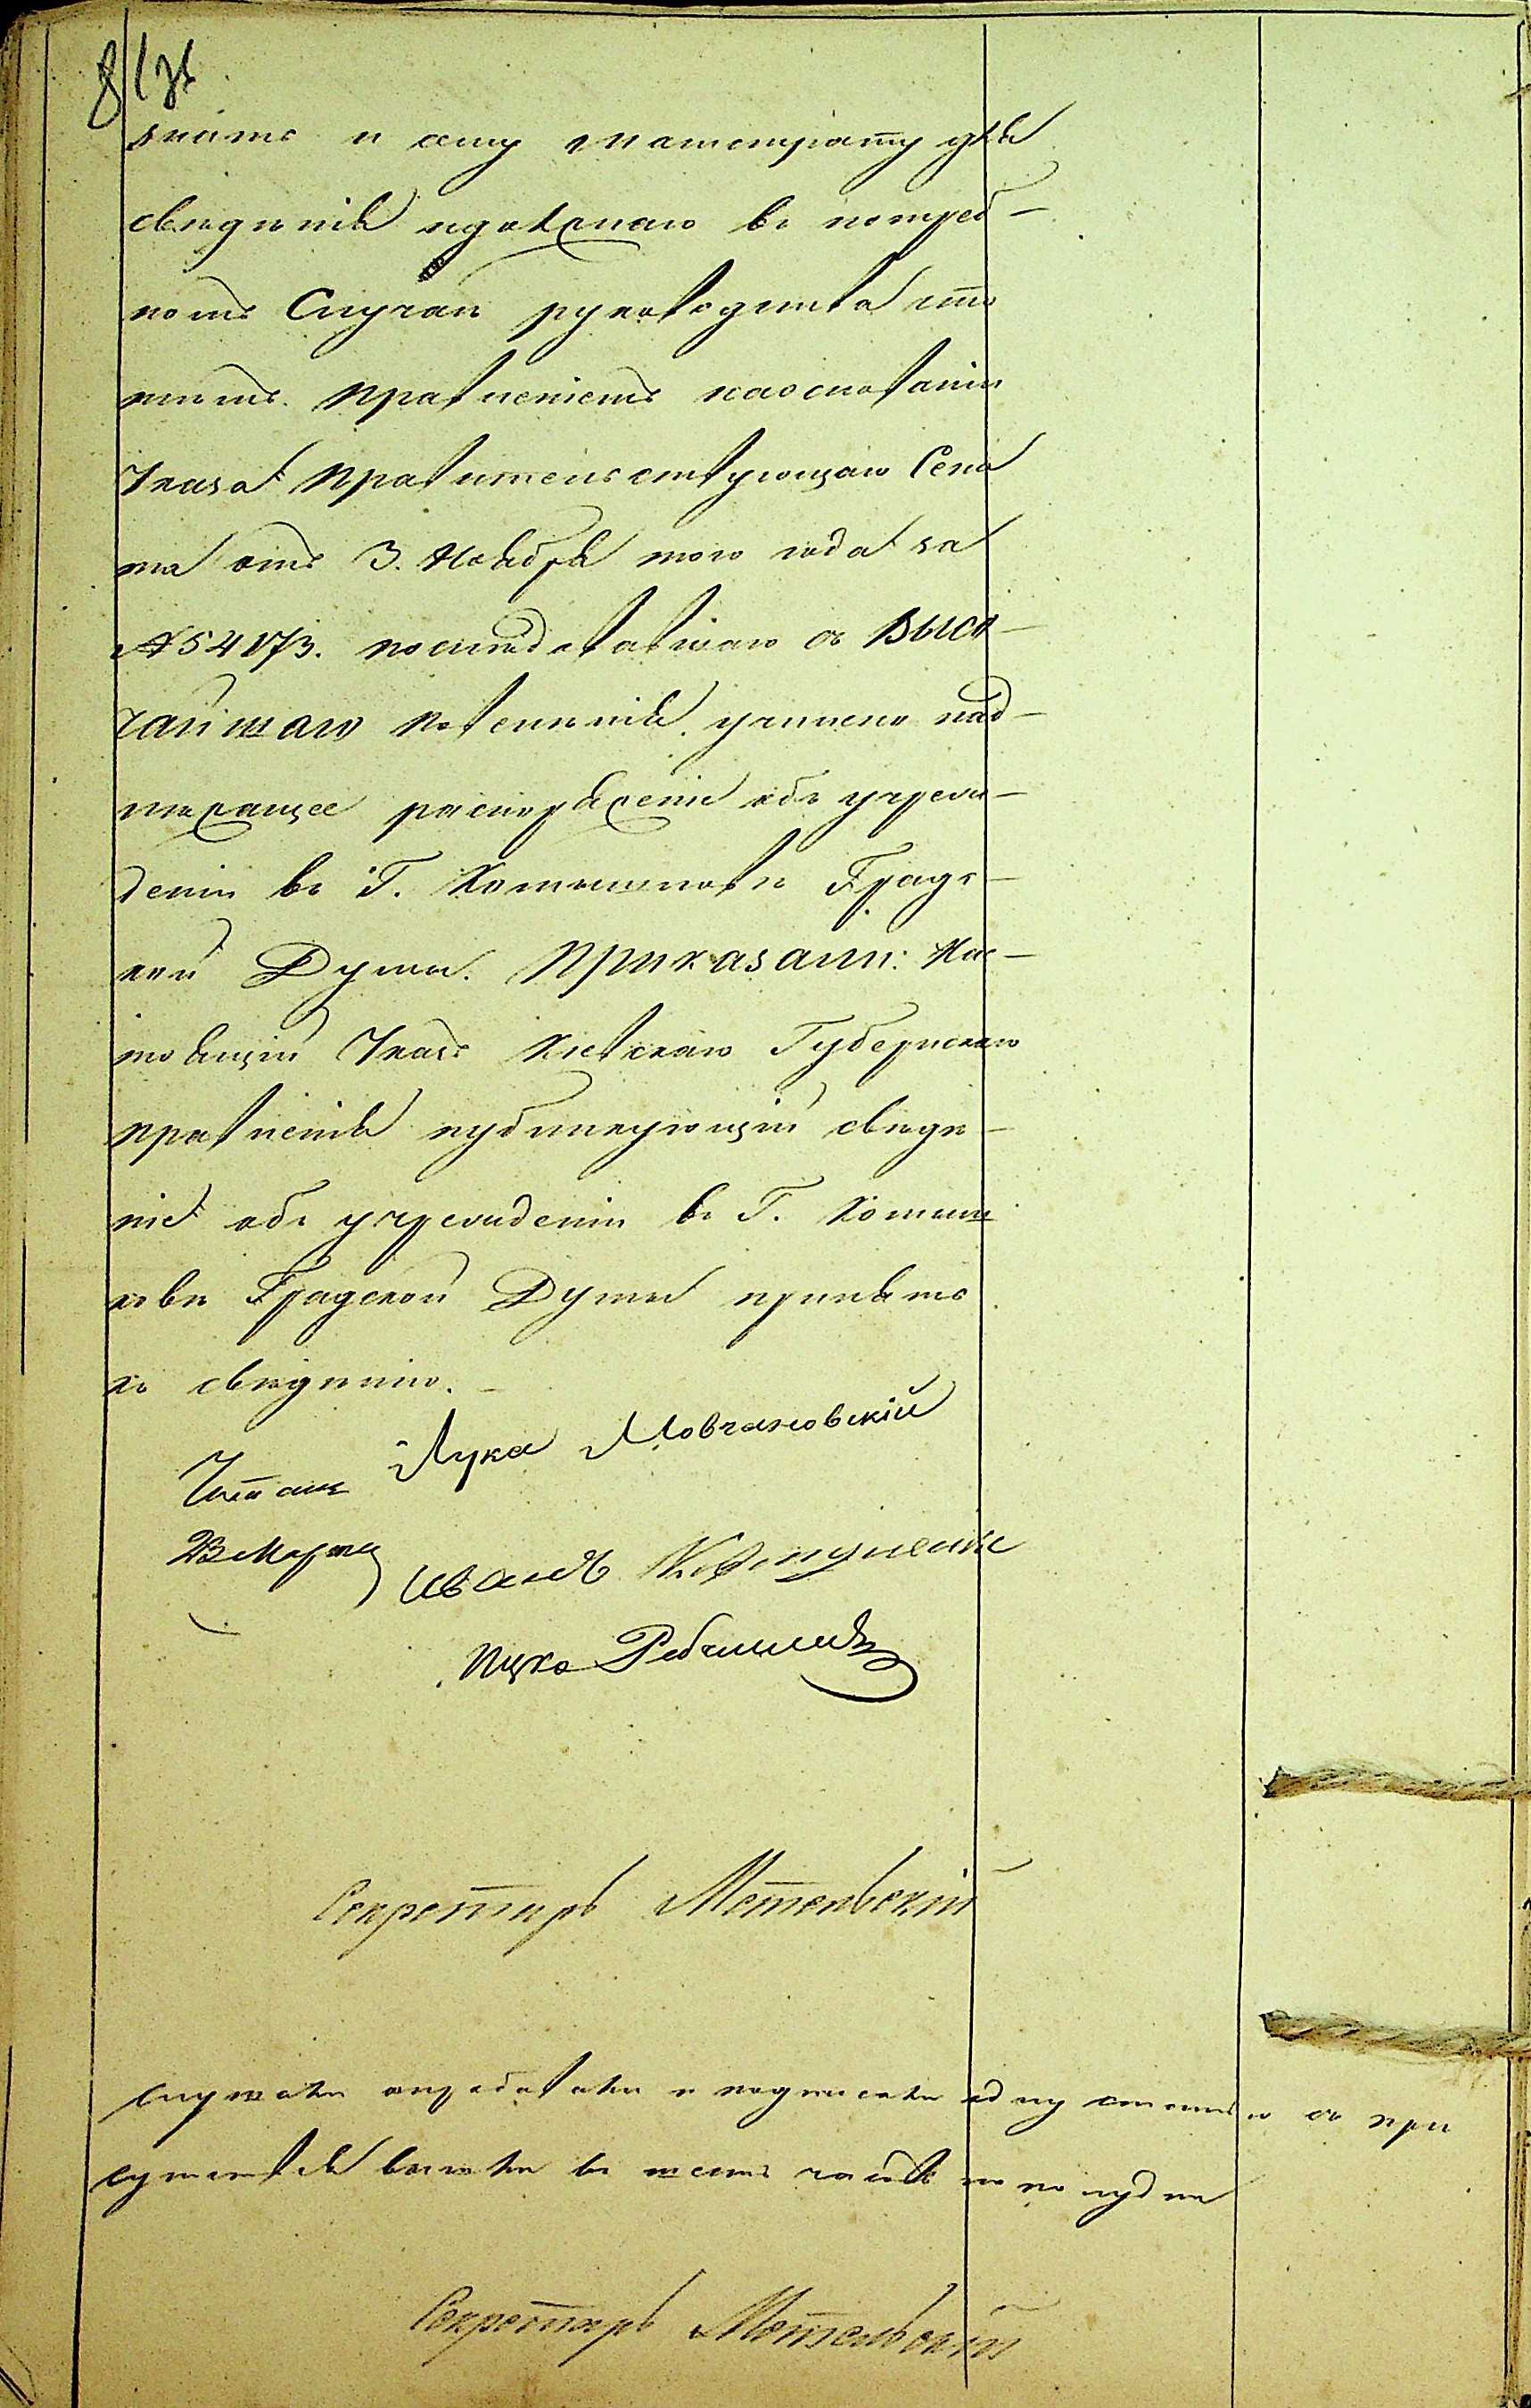 знать и сему магистрату для
свѣдѣнія и должнаго въ потреб-
номъ Случаѣ руководства что
симъ Правленіемъ на основаніи
Указа Правительствующаго Сена
та отъ 3. Ноября того года за
№ 54173. послѣдовавшаго съ Высо-
чайшаго повелѣнія учинено над-
лежащее распоряженіе объ учреж-
деніи въ Г. Хотинѣ Градс-
кой Думы. Приказали: Нас-
тоящій Указъ Кіевскаго Губернскаго
правленія публикующій свѣдѣ-
ніе объ учрежденіи въ Г.
Градской Думы принять
къ свѣдѣнію.
Лука Мовчановскій
Читалъ
Марта
Иванъ
Ицко
Секретарь Метельскій
Слушали опробовали и подписали сію съ при
сутствія вышли въ часовъ по полудни
Секретарь Метельскій